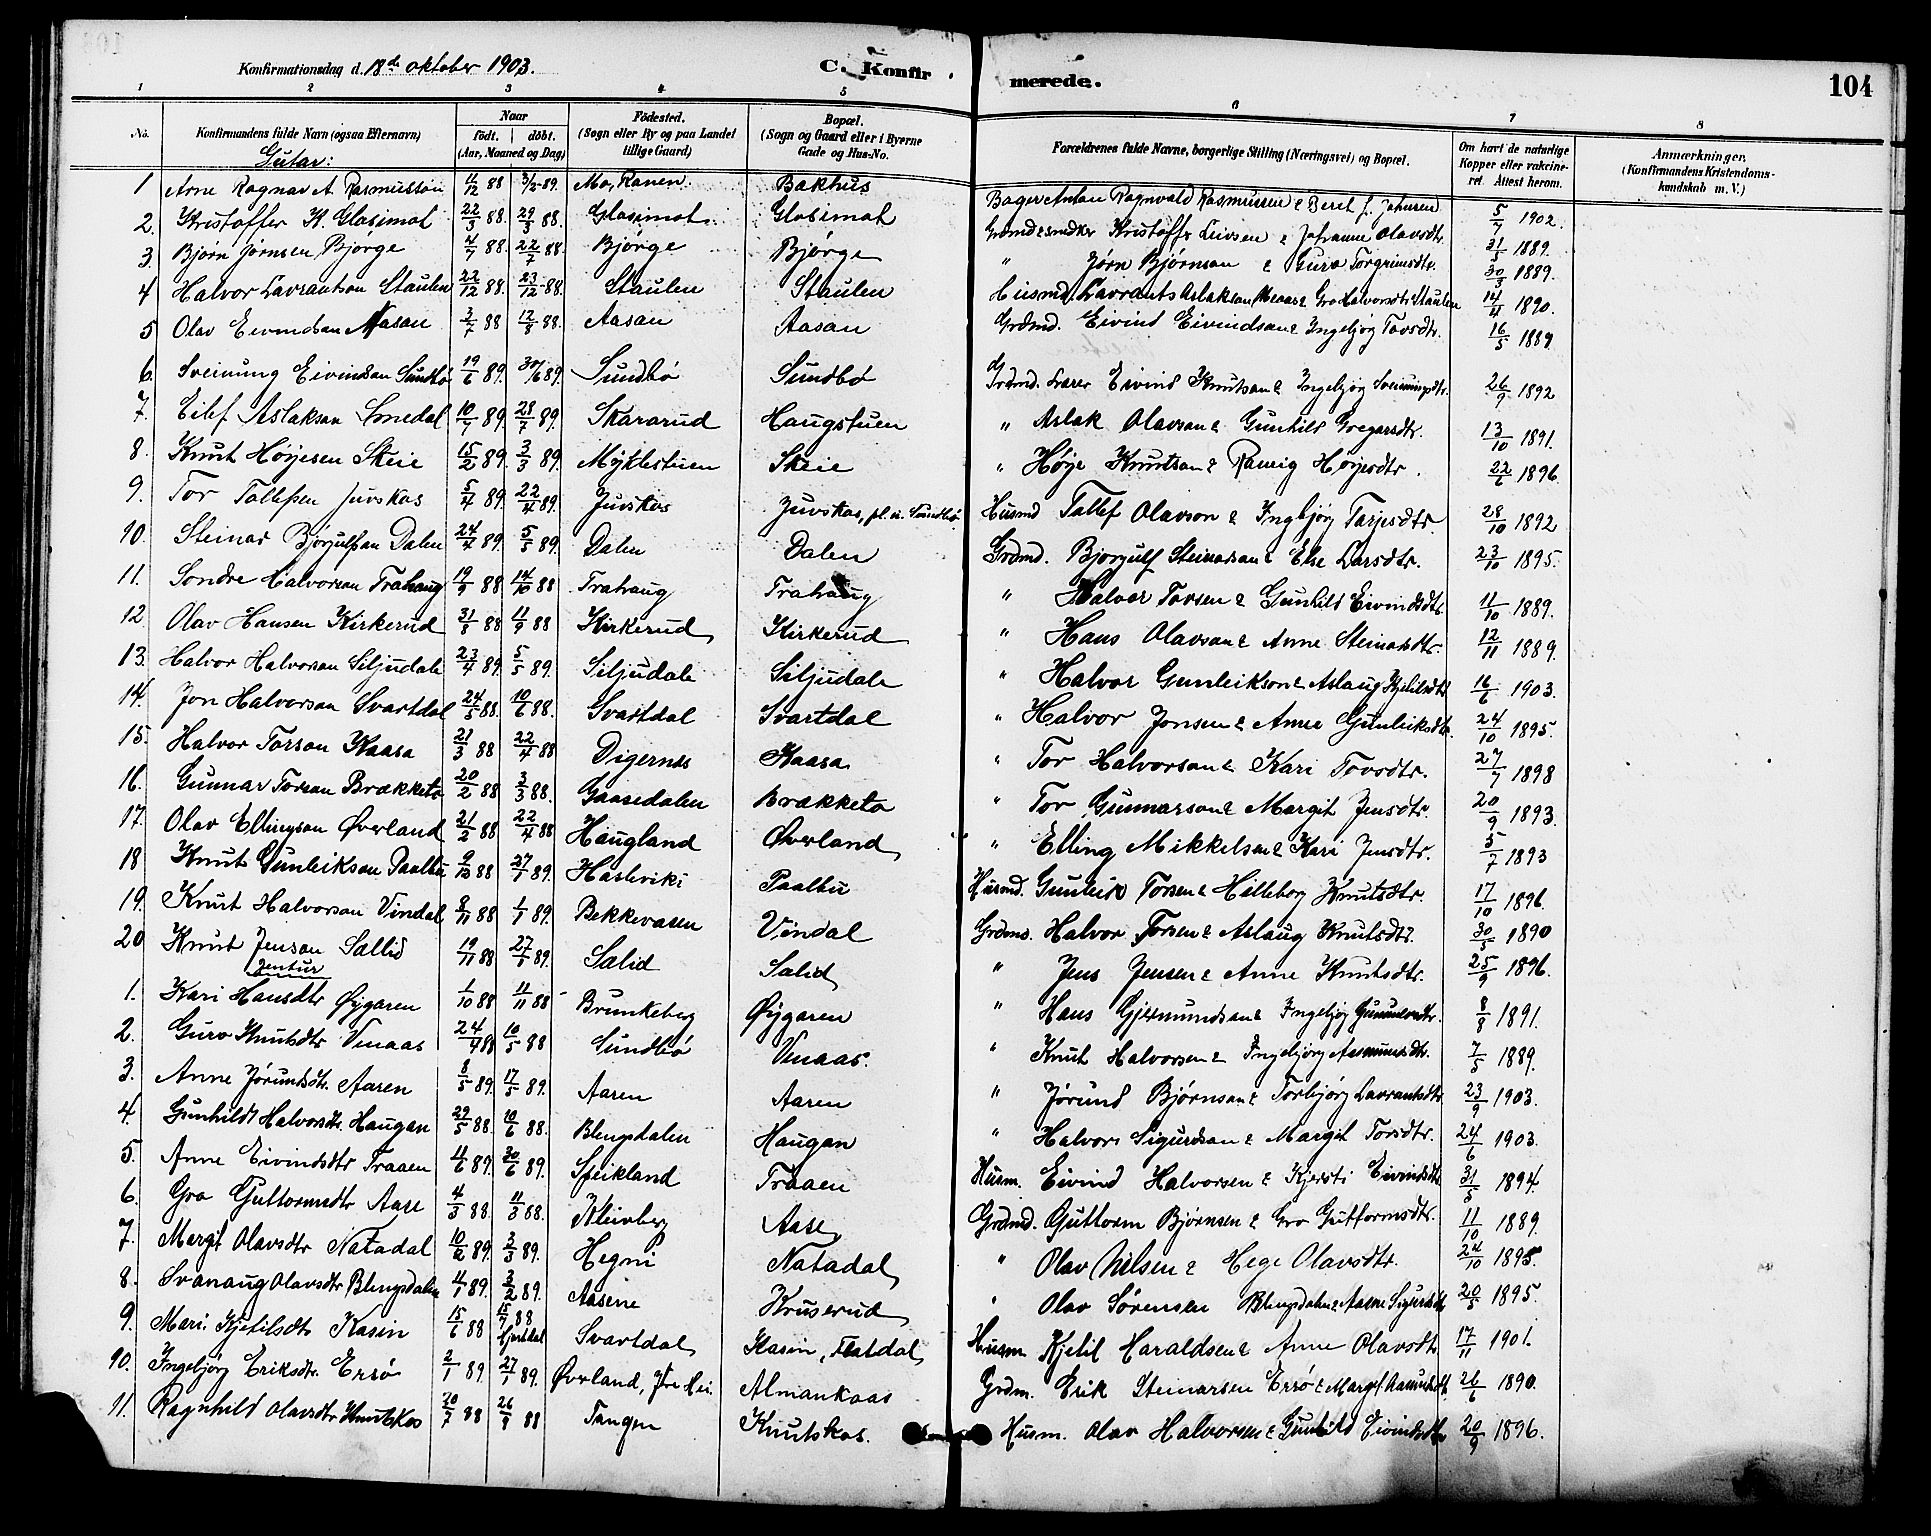 Konfirmationsdag d. 18de oktober 1903. C. Konfirmerede. 104
1 2 3 4 5 6 7 8
No. Konfirmandens fulde Navn (ogsaa Efternavn) Naar födt. döbt. (Aar, Maaned og Dag) Födested. (Sogn eller By og paa Landet tillige Gaard) Bopæl. (Sogn og Gaard eller i Byerne Gade og Hus-No. Forældrenes fulde Navne, borgerlige Stilling (Næringsvei) og Bopæl. Om havt de naturlige Kopper eller vakcineret. Attest herom. Anmærkninger. (Konfirmandens Kristendomskundskab m. V.)
Gutar:
1 Arne Ragnar A. Rasmussøn 11/12 88 3/2-89. Mo, Ranen. Bakhus Bager Anton Ragnvald Rasmussen & Beret f. Johnsen 5/7 1902.
2. Kristoffer K. Glosimot 22/3 88. 29/3 88. Glosimot. Glosimot Kristoffer Leivsen & Johanne Olavsdtr. 31/5 1889.
3. Bjørn Jørnsen Bjørge 4/7 88. 22/7 88. Bjørge Bjørge " Jørn Bjørnson & Guro Torgrimsdtr. 30/3 1889.
4 Halvor Lavrantson Staulen 22/12 88. 23/12-88. Staulen Staulen Husmd. Lavrants Aslakson & Gro Halvorsdtr Staulen 14/4 1890.
5 Olav Eivindsan Aasan 3/7 88 12/8 88. Aasan Aasan Grdmd. Eivind Eivindsan & Ingebjög Tovsdtr. 16/5 1889
6. Sveinung Eivindsan Sundbø 19/6 89. 30/6 89. Sundbø Sundbø Grdmd. Eivind Knutsan & Ingebjög Sveinungsdtr. 26/9 1892
7. Eilef Aslaksan Smedal 10/7 89. 28/7 89. Skararud Haugstuen " Aslak Olavsan & Gunhild Gregarsdtr. 13/10 1891.
8. Knut Høyesen Skeie 15/2 89. 3/3 89. Möjklestuen Skeie " Høye Knutsan & Ranvig Høyesdtr. 22/6 1896.
9. Tor Tallefsen Juvskas 5/4 89. 22/4 89. Juvskas Juvskas, pl. u. Sundbö Husmd Tallef Olavson & Ingebjörg Tarjesdtr. 28/10 1892
10. Steinar Bjørgulfsan Dalen 24/4 89. 5/5 89. Dalen Dalen Grdmd. Bjørgulf Steinarsan & Else Larsdtr. 23/10 1895.
11. Sondre Halvorsan Trahaug 19/9 88 14/10 88 Trahaug Trahaug " Halvor Tovsen & Gunhild Eivindsdtr 11/10 1889.
12 Olav Hansen Kirkerud 31/8 88 11/9 88 Kirkerud Kirkerud " Hans Olavsan & Anne Steinarsdtr. 12/11 1889.
13. Halvor Halvorsan Siljudale 23/4 89. 5/5 89. Siljudale Siljudale " Halvor Gunleikson & Aslaug Kjetilsdtr 16/6 1903.
14. Jon Halvorsan Svartdal 24/5 88. 10/6 88. Svartdal Svartdal " Halvor Jonsen & Anne Gunleiksdtr. 24/10 1895.
15. Halvor Torsan Kaasa 21/3 88 22/4 88 Digernes Kaasa " Tor Halvorsan & Kari Tovsdtr. 27/7 1898
16. Gunnar Torsan Brækketo 20/2 88 3/3 88. Gaasedalen Brækketo " Tor Gunnarson & Margit Jensdtr. 20/9 1893.
17. Olav Ellingsan Øverland 21/2 88 22/4 88 Haugland Øverland " Elling Mikkelsen & Kari Jensdtr. 5/7 1893
18 Knut Gunleiksan Paalbu 9/12 88 27/1 89. Hasleviki Paalbu Husmd. Gunleik Torsen & Hilleborg Knutsdtr. 17/10 1896.
19. Knut Halvorsan Vindal 8/11 88 1/1 89. Bekkevasen Vindal Grdmd. Halvor Torsen & Aslaug Knutsdtr. 30/5 1890
20 Knut Jensan Sallid 19/11 88 27/1 89. Salid Salid " Jens Jensen & Anne Knutsdtr. 25/9 1896.
Jentur
1. Kari Hansdtr Øygaren 1/10 88 11/11 88 Brunkeberg Øygaren " Hans Gjermundsan & Ingebjög 8/8 1891.
2. Guro Knutsdtr Vinaas 24/4 88 10/5 88 Sundbø Vinaas. " Knut Halvorsen & Ingebjörg Aasmunsdtr. 7/5 1889.
3. Anne Jørundsdtr. Aaren 8/5 89. 17/5 89. Aaren Aaren " Jørund Bjørnsan & Torbjörg Lavrantsdtr 23/9 1903.
4. Gunhild Halvorsdtr. Haugan 29/5 88. 10/6 88. Blengsdalen Haugan " Halvor Sigurdsan & Margit Torsdtr. 24/6 1903.
5. Anne Eivindsdtr Traaen 4/6 89. 30/6 89. Speikland Traaen Husm. Eivind Halvorsen & Kjersti Eivindsdtr 31/5 1894.
6. Gro Guttormsdtr Aase 4/3 88. 11/3 88. Kleivberg Aase Grdmd. Guttorm Bjørnsen & Gro Guttormsdtr. 11/10 1889.
7. Margit Olavsdtr Natadal 10/2 89. 3/3 89. Hegni Natadal " Olav Nilsen & Hege Olavsdtr. 24/10 1895.
8. Svanaug Olavsdtr Blengsdalen 4/1 89. 3/2 89. Aasene Kruserud " Olav Sørensen Blengsdalen & Aasne Sigurdsdtr 20/5 1895.
9. Mari Kjetilsdtr Kasin 15/6 88 15/7 88 Hjartdal Svartdal Kasin, Flatdal Husm Kjetil Haraldsen & Anne Olavsdtr 17/11 1901.
10. Ingebjörg Eriksdtr. Ersö 2/1 89. 27/1 89. Øverland, Almankaas Grdm. Erik Steinarsen Ersö & Margit 26/6 1890.
11. Ragnhild Olavsdtr Knutskas 20/7 88 26/8 88 Tangen Knutskas. Husm. Olav Halvorsen & Gunhild Eivindsdtr 20/9 1896.